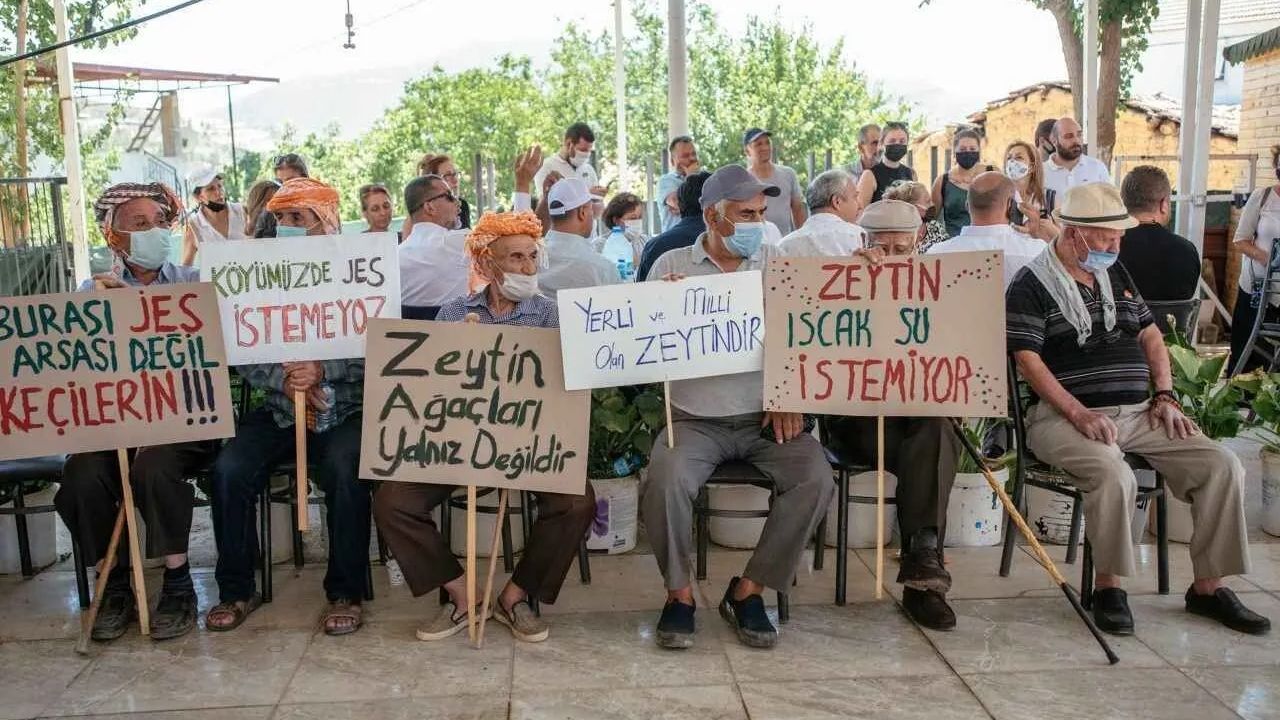 BURASI JES
ARSASI DEĞİL
KEÇİLERİN!!!
KÖYÜMÜZDE JES
İSTEMEYOZ
Zeytin
Ağaçları
Yalnız Değildir
YERLi ve MiLLi
Olan ZEYTİNDİR
ZEYTİN
ISCAK SU
İSTEMİYOR